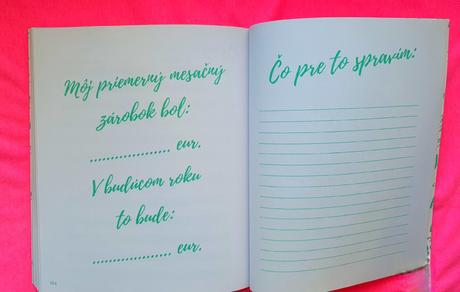 Môj priemerný mesačný
zárobok bol:
.................. eur.
V budúcom roku
to bude:
.................. eur.
Čo pre to spravím: